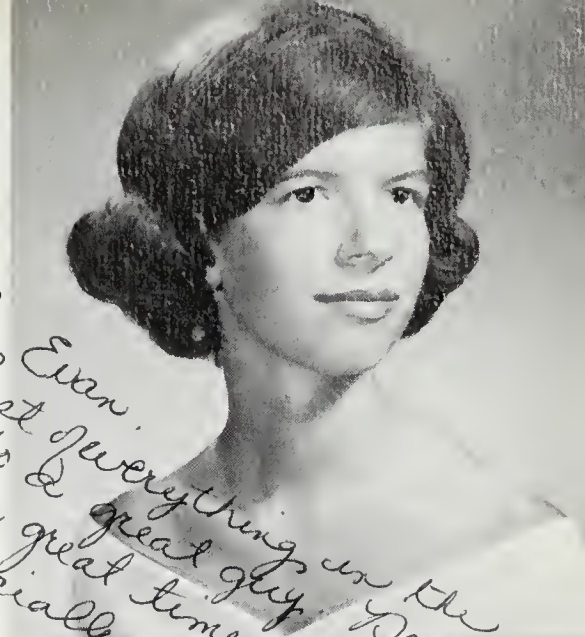 Evan,
of everything in the
a great guy.
great time